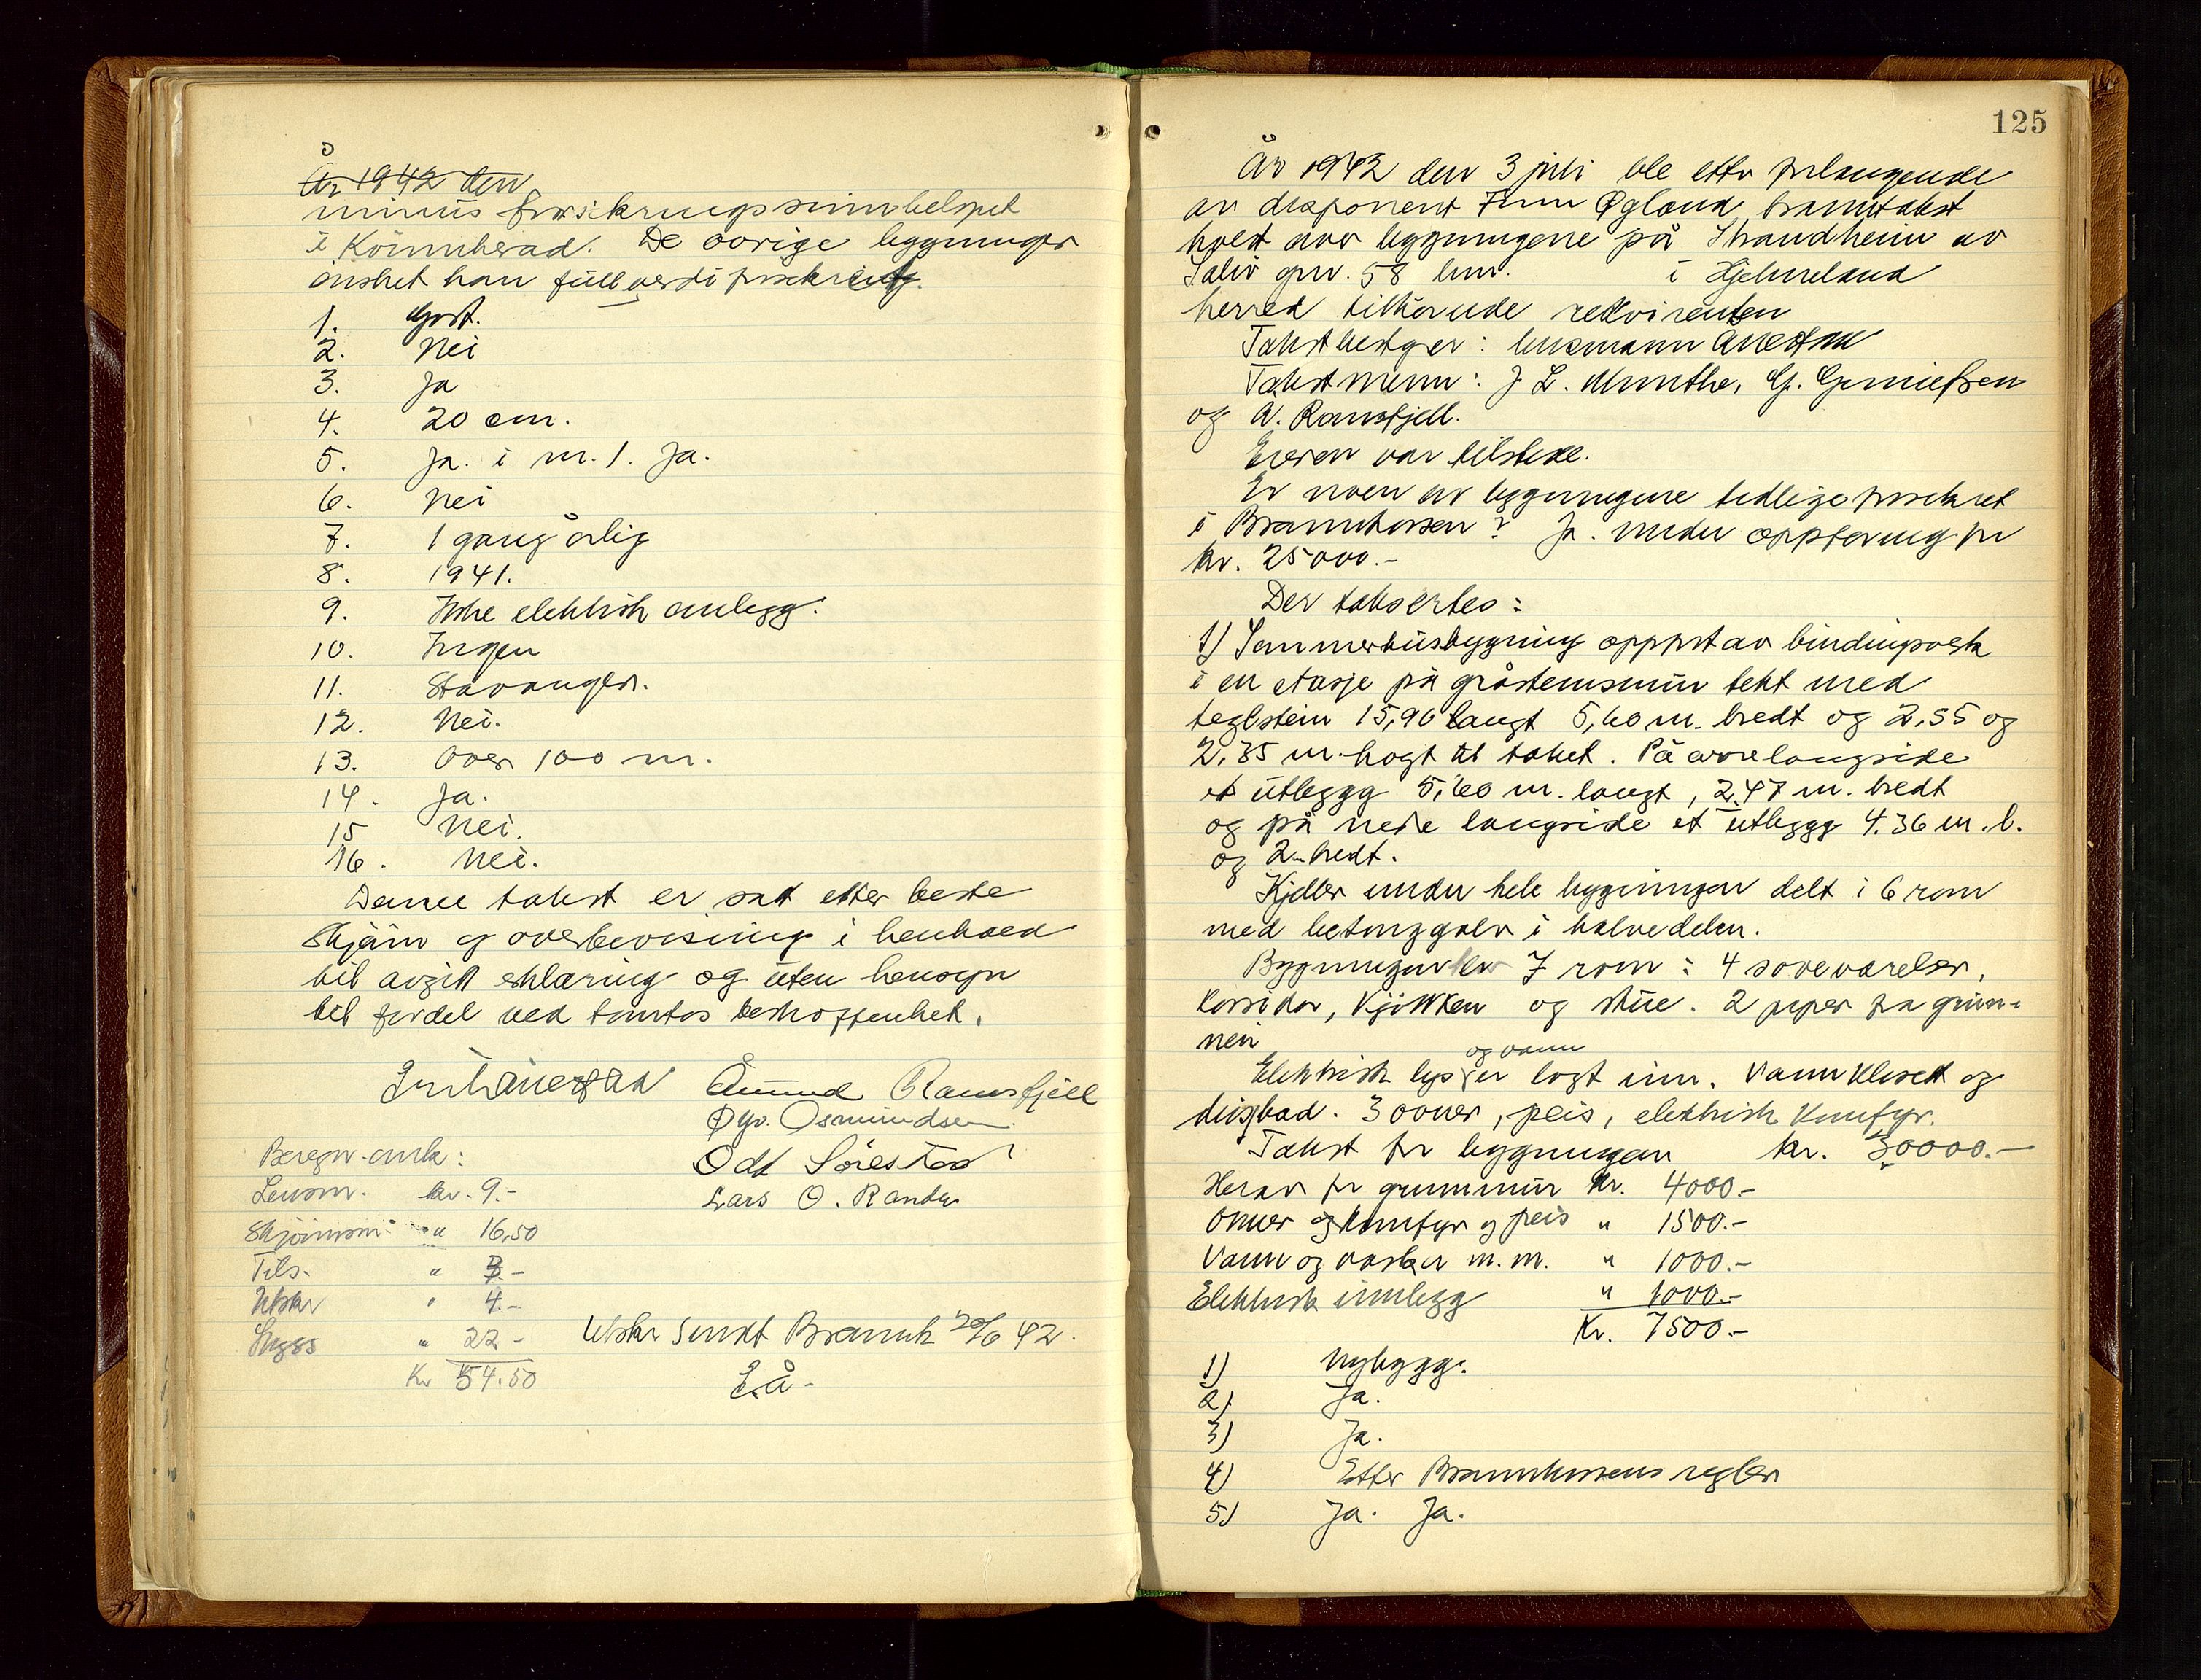 År 1942 den
minus forsikringssumbeløpet
i Kvinnherad. De øvrige bygninger
ønsket han full verdi forsikring.
1. Godt.
2. Nei
3. Ja
4. 20 cm.
5. Ja. i nr. 1. Ja.
6. Nei
7. 1 gang årlig
8. 1941.
9. Ikke elektrisk anlegg.
10. Ingen
11. Stavanger.
12. Nei.
13. Over 100 m.
14. Ja.
15 Nei.
16. Nei.
Denne takst er satt etter beste
skjønn og overbevisning i henhold
til avgitt erklæring og uten hensyn
til fordel ved tomtas beskaffenhet.
Åmund Ramsfjell
Øyv. Osmundsen
Odd Sørestad
Lars O. Randa
Beregn. ank:
Lensm. kr. 9.-
Skjønnsm. " 16,50
Tils. " 3.-
Utskr " 4.-
Skyss " 22.-
Kr 54.50
Utskr sendt Brannk 20/6 42.
E.Å.
125
År 1942 den 3 juli ble etter forlangende
av disponent Finn Øgland branntakst
holdt over bygningene på Strandheim av
gnr. 58 bnr. i Hjelmeland
herred tilhørende rekvirenten
Takstbestyrer: lensmann Anestad
Takstmenn: J. L. Munthe, G. Gunnießen
og A. Ramsfjell.
Eieren var tilstede.
Er noen av bygningene tidligere forsikret
i Brannkassen? Ja. under oppføring for
kr. 25000.-
Der takserties:
1) Sommerhusbygning oppført av bindingsverk
i en etasje på gråsteinsmur tekt med
teglstein 15,90 langt 5,60 m. bredt og 2,55 og
2,35 m høgt til taket. På øvre langside
et utbygg 5,60 m. langt, 2,47 m. bredt
og på nedre langside et utbygg 4.36 m. l.
og 2 bredt.
Kjeller under hele bygningen delt i 6 rom
med betonggolv i halvedelen.
Bygningen har 7 rom: 4 soveværelser,
korridor, Kjøkken og stue. 2 piper fra grun-
nen
Elektrisk lys og vann er lagt inn. Vannklosett og
dusjbad. 3 ovner, peis, elektrisk komfyr.
Takst for bygningen kr. 30000.-
Herav for grunnmur kr. 4000.-
Ovner og komfyr og peis " 1500.-
Vann og vasker m.m. " 1000.-
Elektrisk innlegg " 1000.-
Kr. 7500.-
1) Nybygg.
2) Ja.
3) Ja.
4) Etter Brannkassens regler
5) Ja. Ja.